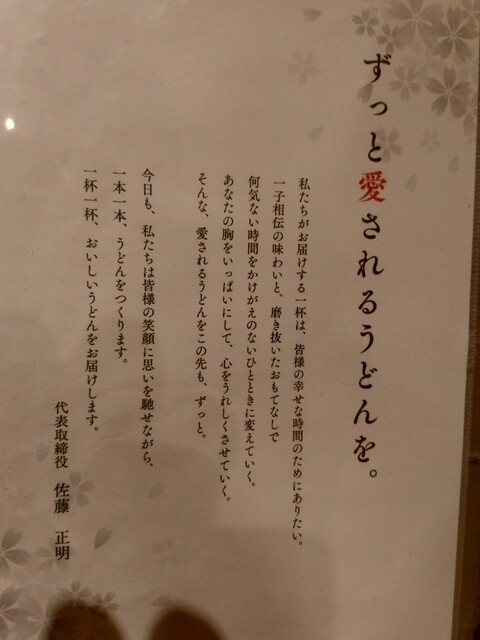 ずっと愛されるうどんを。
私たちがお届けする一杯は、皆様の幸せな時間のためにありたい。
一子相伝の味わいと、磨き抜いたおもてなしで
何気ない時間をかけがえのないひとときに変えていく。
あなたの胸をいっぱいにして、心をうれしくさせていく。
そんな、愛されるうどんをこの先も、ずっと。
今日も、私たちは皆様の笑顔に思いを馳せながら、
一本一本、うどんをつくります。
一杯一杯、おいしいうどんをお届けします。
代表取締役 佐藤 正明